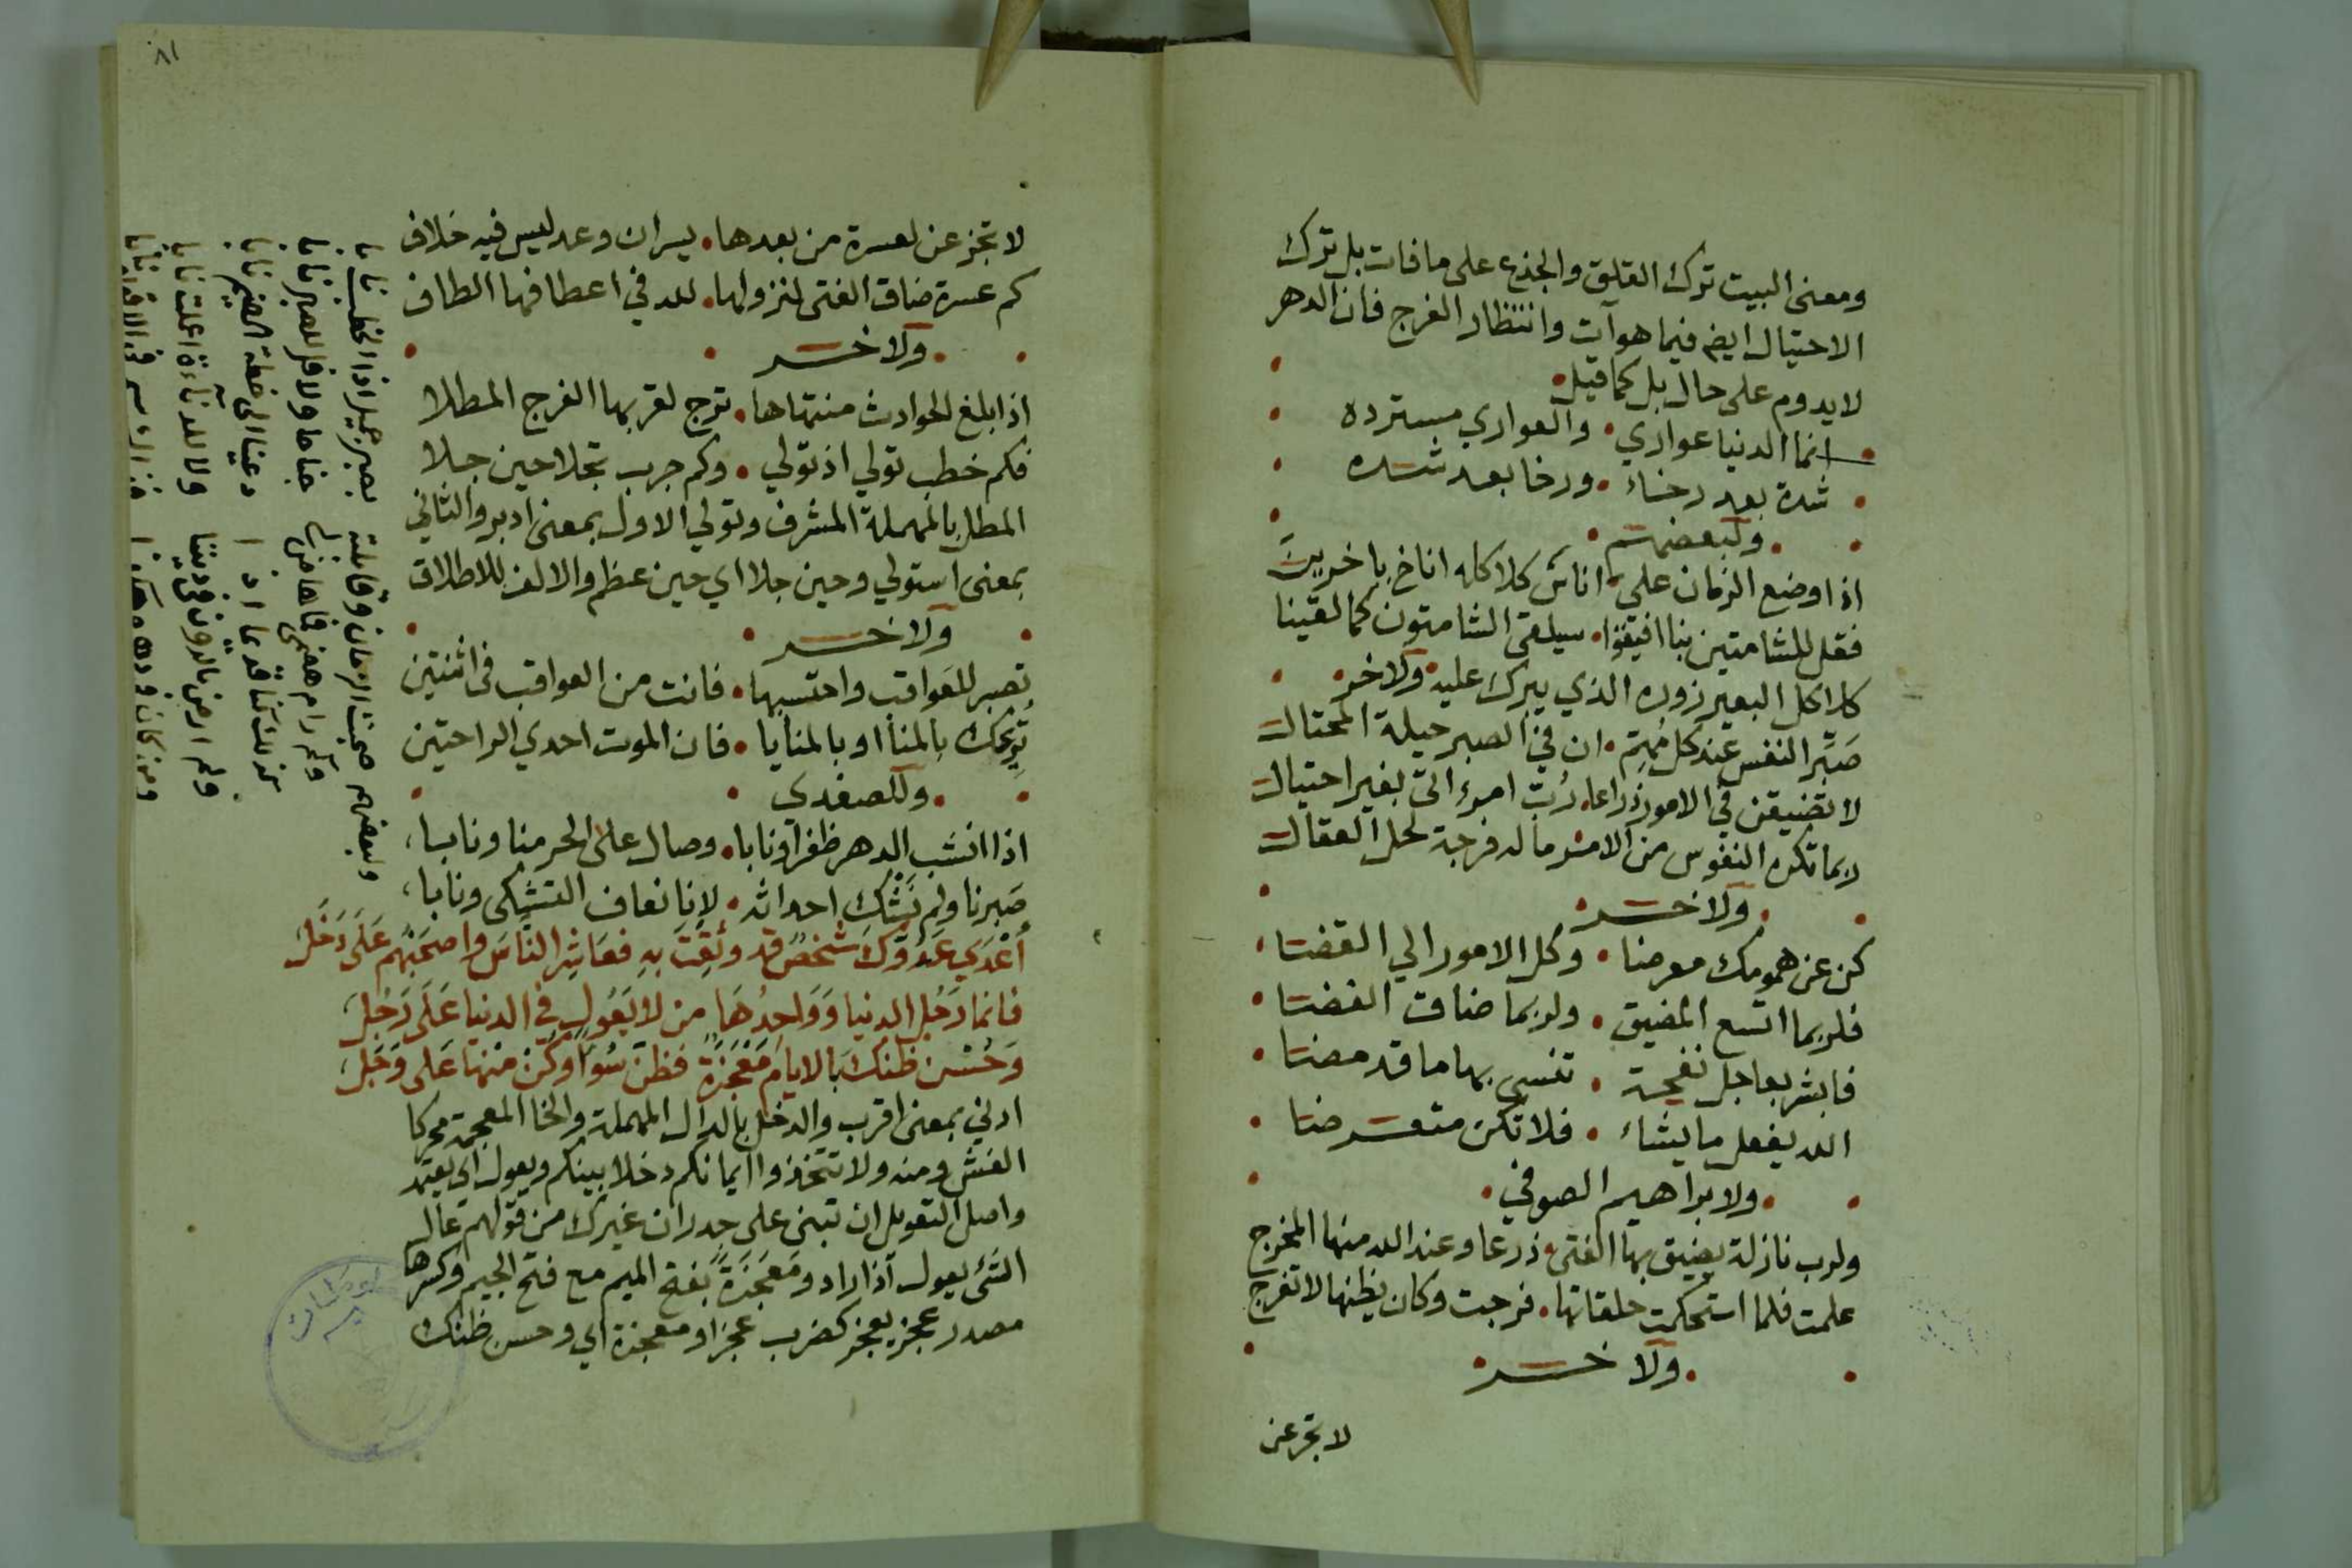 ومعنى البيت ترك القلق والجزع على ما فات بل ترك
الاحتيال ايضا فيما هو آت وانتظار الفرج فان الدهر
لا يدوم على حال بل كما قيل
انما الدنيا عواري والعواري مسترده
شدة بعد رخاء ورخا بعد شده
ولبعضهم
اذا وضع الزمان على اناس كلاكله اناخ باخرينا
فقل للشامتين بنا افيقوا سيلقى الشامتون كما لقينا
كلاكل البعير زوره الذي يبرك عليه ولاخر
صَبِّر النفس عند كل مُهِمّ ان في الصبر حيلة المحتال
لا تضيقن في الامور ذراعا رُبّ امرء اتى بغير احتيال
ربما تكره النفوس من الامر ماله فرجة كحل العقال
ولاخر
كن عن همومك معرضا وكل الامور الي القضا
فلربما اتسع المضيق ولربما ضاق الفضا
فابشر بعاجل نفحة تنسى بها ما قد مضا
الله يفعل ما يشاء فلا تكن متعرضا
ولابراهيم الصوفي
ولرب نازلة يضيق بها الفتى ذرعا وعند الله منها المخرج
علمت فلما استحكمت حلقاتها فرجت وكان يظنها لا تفرج
ولاخر
لا تجزعن
٨١
لا تجزعن لعسرة من بعدها يسران وعد ليس فيه خلاف
كم عسرة ضاق الفتى لنزولها لله في اعطافها الطاف
ولاخر
اذا بلغ الحوادث منتهاها ترج لقربها الفرج المطلا
فكم خطب تولي اذ تولي وكم جرب تجلا حين جلا
المطل بالمهملة المشرف وتولي الاول بمعنى ادبر والثاني
بمعنى استولي وحين جلا اي حين عظم والالف للاطلاق
ولاخر
تصبر للعواقب واحتسبها فانت من العواقب في اثنتين
تُرِيحك بالمنا او بالمنايا فان الموت احدي الراحتين
وللصفدي
اذا انشب الدهر ظفرا ونابا وصال على الحر منا ونابا
صَبرنا ولم نشك احداثه لانا نعاف التشكى ونابا
أَعْدَي عَدُوِّكَ شخصٌ قد وَثِقتَ بهِ فعَاشِرِ النَّاسَ واصحَبْهُم عَلَى دَخَلِ
فانما رَجُل الدنيا وَوَاحِدُهَا من لا يَعُولِ في الدنيا عَلَى رَجُلِ
وَحُسْن ظنكَ بالايام مَعْجَزَةٌ فظن سُوًا وكن منها عَلى وَجَلِ
ادني بمعنى اقرب والدخل بالدال المهملة والخا المعجمة محركا
الغش ومنه ولا تتخذوا ايمانكم دخلا بينكم ويعول اي يعتمد
واصل التعويل ان تبنى على جدران غيرك من قولهم عال
الشئ يعول اذا زاد ومَعجَزَةٌ بفتح الميم مع فتح الجيم وكسرها
مصدر عجز يعجز كضرب عجزا ومعجزة اي وحسن ظنك
ولبعضهم
صحبت الزمان وقابلته بصبر جميل اذا الخطب نابا